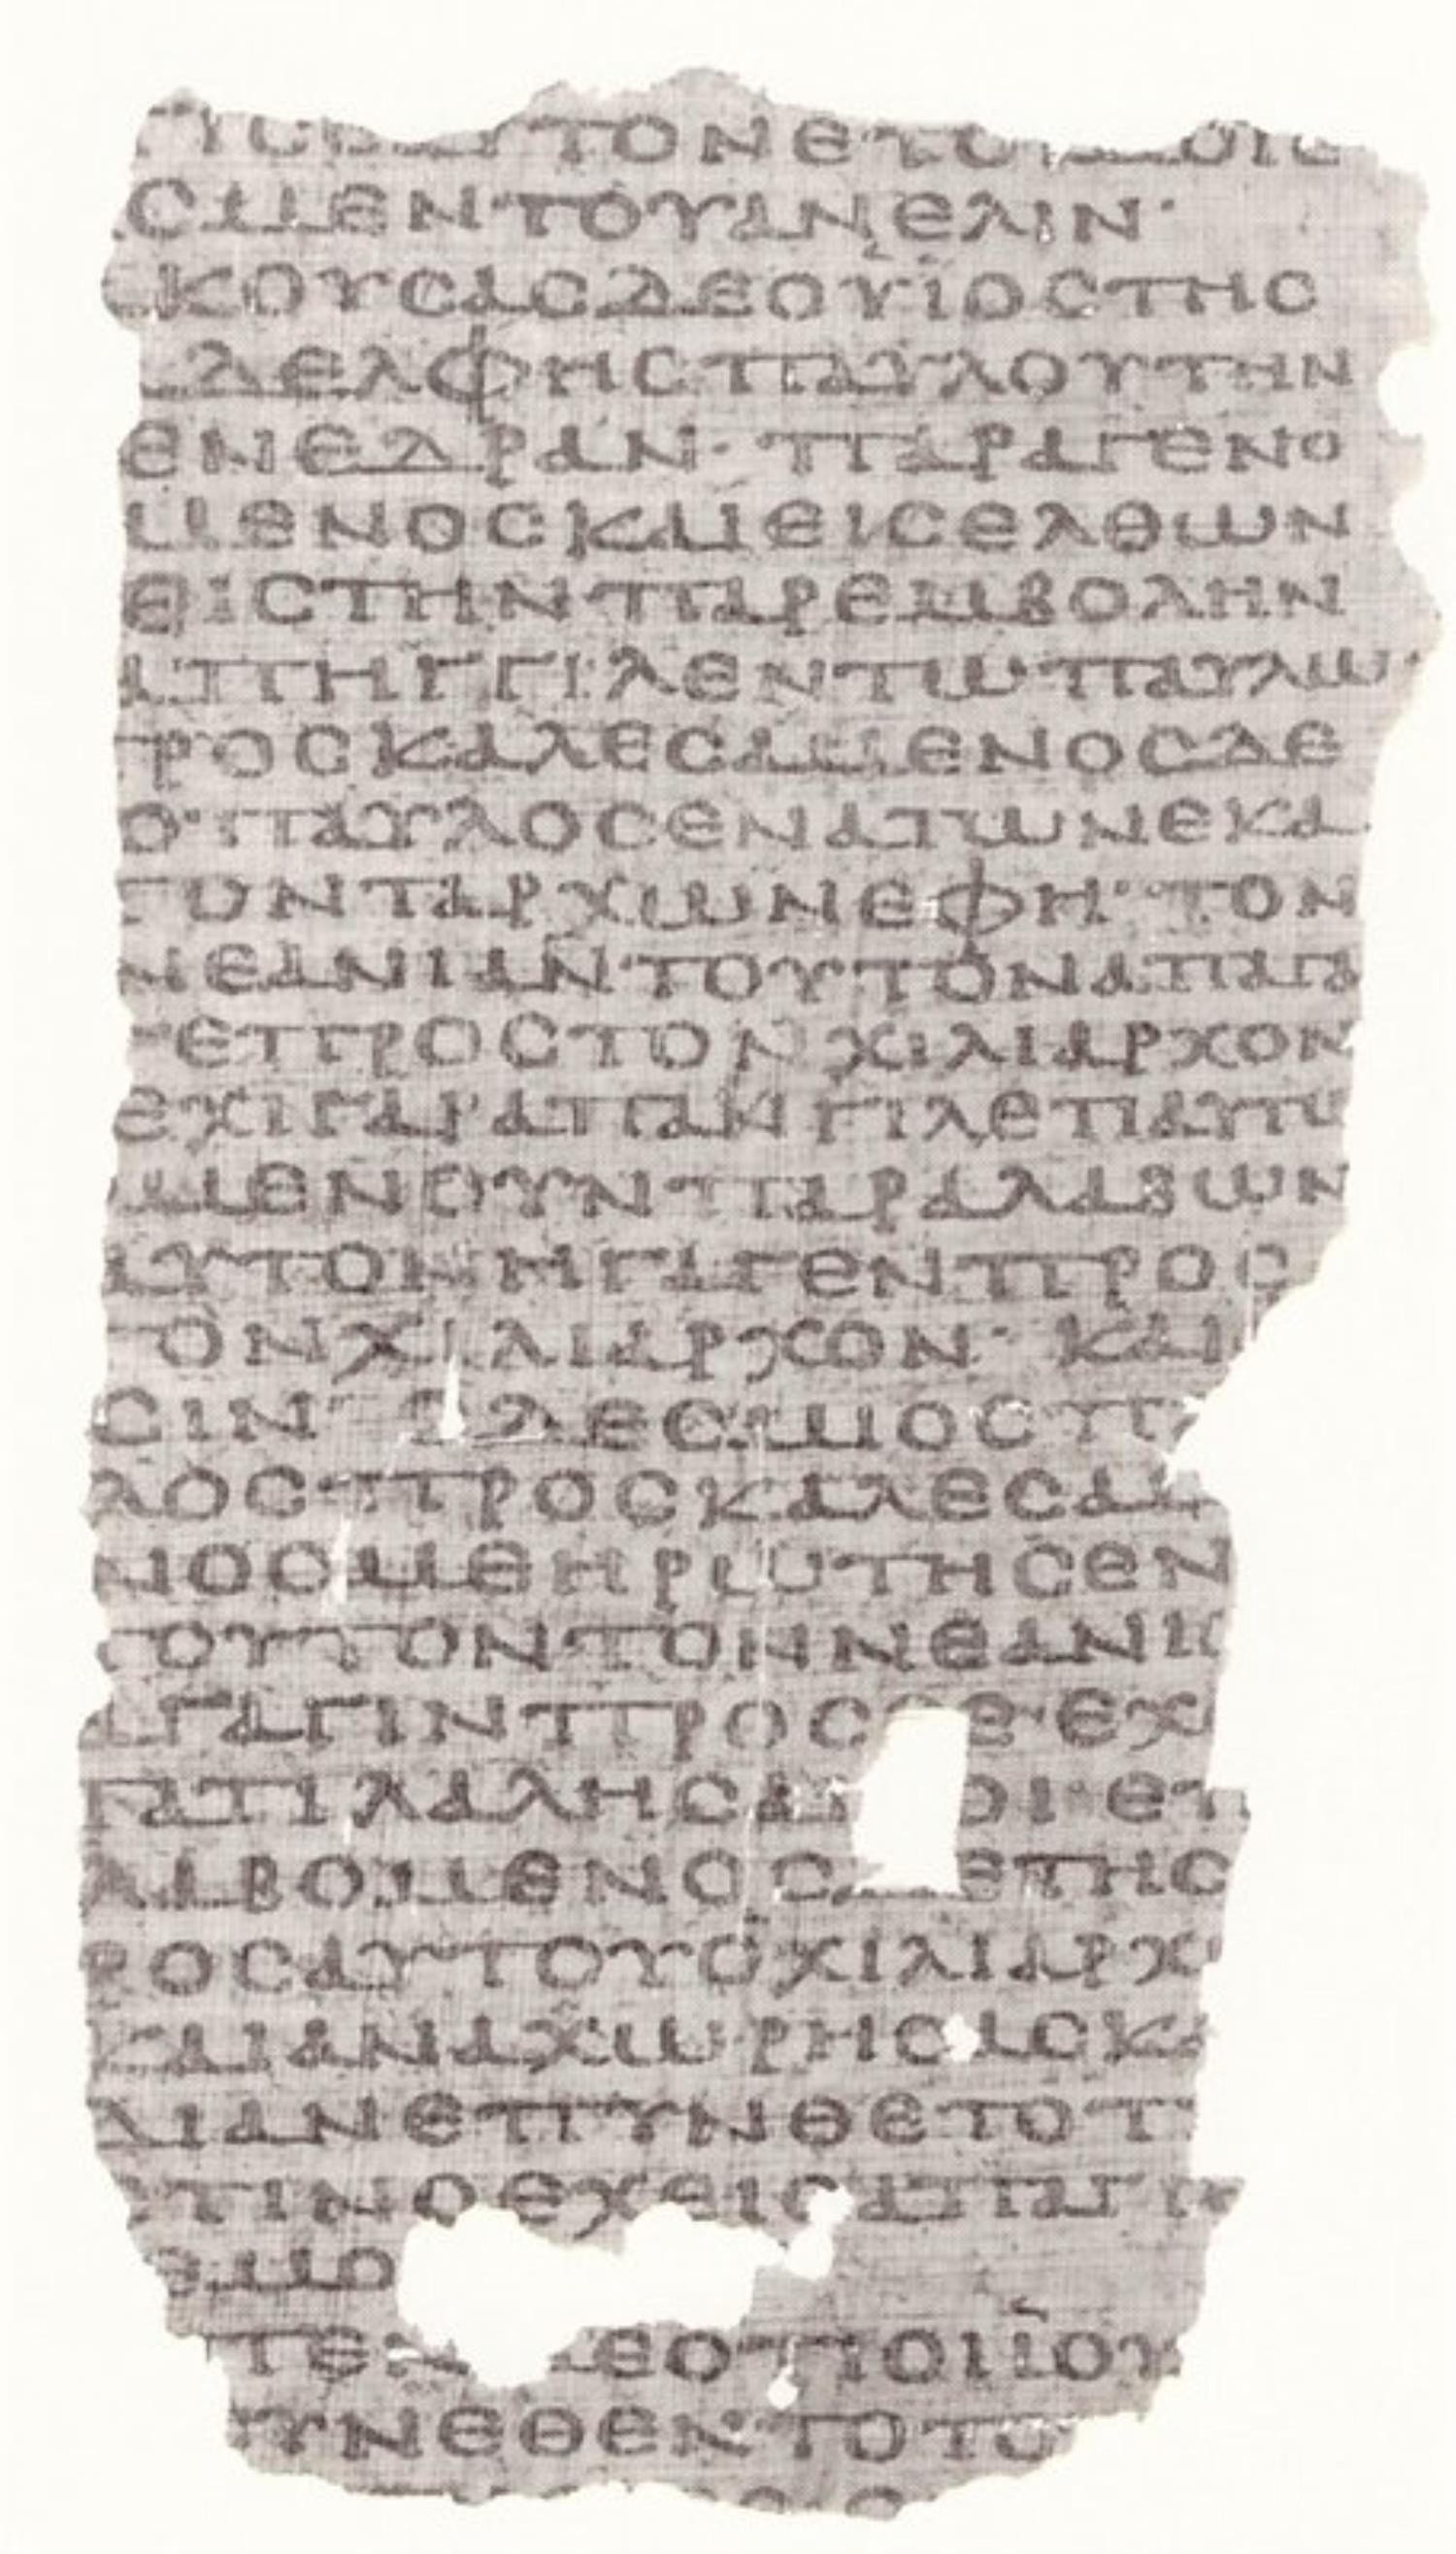 ΤΟΝΕΤΟ
CΜΕΝΤΟΥΑΝΕΛΙΝ·
ΚΟΥCΑCΔΕΟΥΙΟCΤΗC
ΔΕΛΦΗCΠΑΥΛΟΥΤΗΝ
ΕΝΕΔΡΑΝ· ΠΑΡΑΓΕΝΟ
ΜΕΝΟCΚΑΙΕΙCΕΛΘΩΝ
ΕΙCΤΗΝΠΑΡΕΜΒΟΛΗΝ
ΑΠΗΓΓΙΛΕΝΤΩΠΑΥΛΩ·
ΠΡΟCΚΑΛΕCΑΜΕΝΟCΔΕ
ΟΠΑΥΛΟCΕΝΑΤΩΝΕΚΑ
ΤΟΝΤΑΡΧΩΝΕΦΗ· ΤΟΝ
ΝΕΑΝΙΑΝΤΟΥΤΟΝΑΠΑΓΑ
ΓΕΠΡΟCΤΟΝΧΙΛΙΑΡΧΟΝ
ΕΧΙΓΑΡΑΠΑΝΓΙΛΕΤΙΑΥΤΩ
ΜΕΝΟΥΝΠΑΡΑΛΑΒΩΝ
ΑΥΤΟΝΗΓΑΓΕΝΠΡΟC
ΤΟΝΧΙΛΙΑΡΧΟΝ· ΚΑΙ
CΙΝ ΟΔΕCΜΙΟCΠΑ
ΛΟCΠΡΟCΚΑΛΕCΑΜ
ΝΟCΜΕΗΡΩΤΗCΕΝ
ΤΟΥΤΟΝΤΟΝΝΕΑΝΙC
ΑΓΑΓΙΝΠΡΟC Ε·ΕΧΟ
ΤΑΤΙΛΑΛΗCΑΙ ΟΙ· ΕΠ
ΛΑΒΟΜΕΝΟCΔΕΤΗC
ΡΟCΑΥΤΟΥΟΧΙΛΙΑΡΧ
ΚΑΙΑΝΑΧΩΡΗCΑCΚΑ
ΔΙΑΝΕΠΥΝΘΕΤΟΤ
CΤΙΝΟΕΧΕΙCΑΠΑΓΓΙ
ΕΜΟ
ΠΕΝ ΔΕΟΤΙΟΙΙΟΥ
ΥΝΕΘΕΝΤΟΤΟ